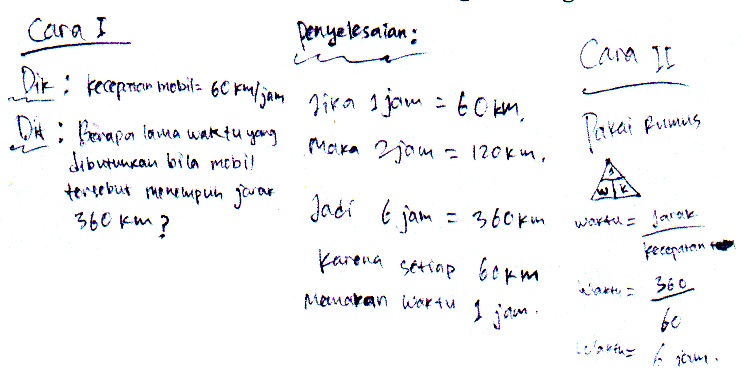 Cara I
Dik : kecepatan mobil = 60 km/jam
Dit : Berapa lama waktu yang
dibutuhkan bila mobil
tersebut menempuh jarak
360 km?
Penyelesaian:
Jika 1 jam = 60 km.
Maka 2 jam = 120 km.
Jadi 6 jam = 360 km
Karena setiap 60 km
Memakan waktu 1 jam.
Cara II
Pakai Rumus
J
W K
waktu = Jarak
kecepatan
Waktu = 360
60
Waktu = 6 jam.